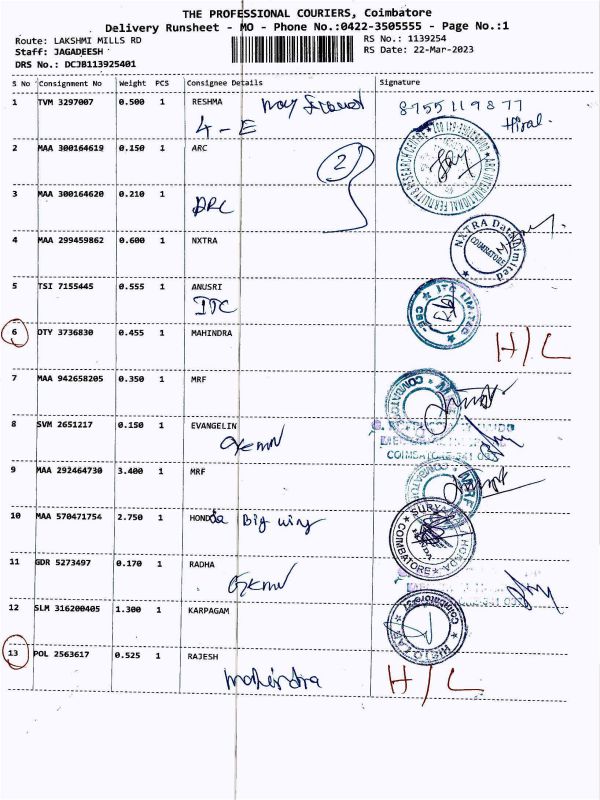 THE PROFESSIONAL COURIERS, Coimbatore
Delivery Runsheet - MO - Phone No.:0422-3505555 - Page No.:1
Route: LAKSHMI MILLS RD
RS No.: 1139254
Staff: JAGADEESH
RS Date: 22-Mar-2023
DRS No.: DCJB113925401
S No Consignment No Weight PCS Consignee Details Signature
1 TVM 3297007 0.500 1 RESHMA 8755119877
4-E Hiral.
2 MAA 300164619 0.150 1 ARC 2
ARC INTERNATIONAL FERTILITY & RESEARCH CENTRE
3 MAA 300164620 0.210 1
ARC
4 MAA 299459862 0.600 1 NXTRA
NXTRA Data Limited
COIMBATORE
5 TSI 7155445 0.555 1 ANUSRI
ITC
ITC LIMITED
CBE
6 OTY 3736830 0.455 1 MAHINDRA H/L
7 MAA 942658205 0.350 1 MRF
8 SVM 2651217 0.150 1 EVANGELIN
COIMBATORE-641
9 MAA 292464730 3.400 1 MRF
MRF
10 MAA 570471754 2.750 1 HONDa Big wing
SURYA HONDA
COIMBATORE
11 GDR 5273497 0.170 1 RADHA
12 SLM 316200405 1.300 1 KARPAGAM
13 POL 2563617 0.525 1 RAJESH
Mahindra H/L